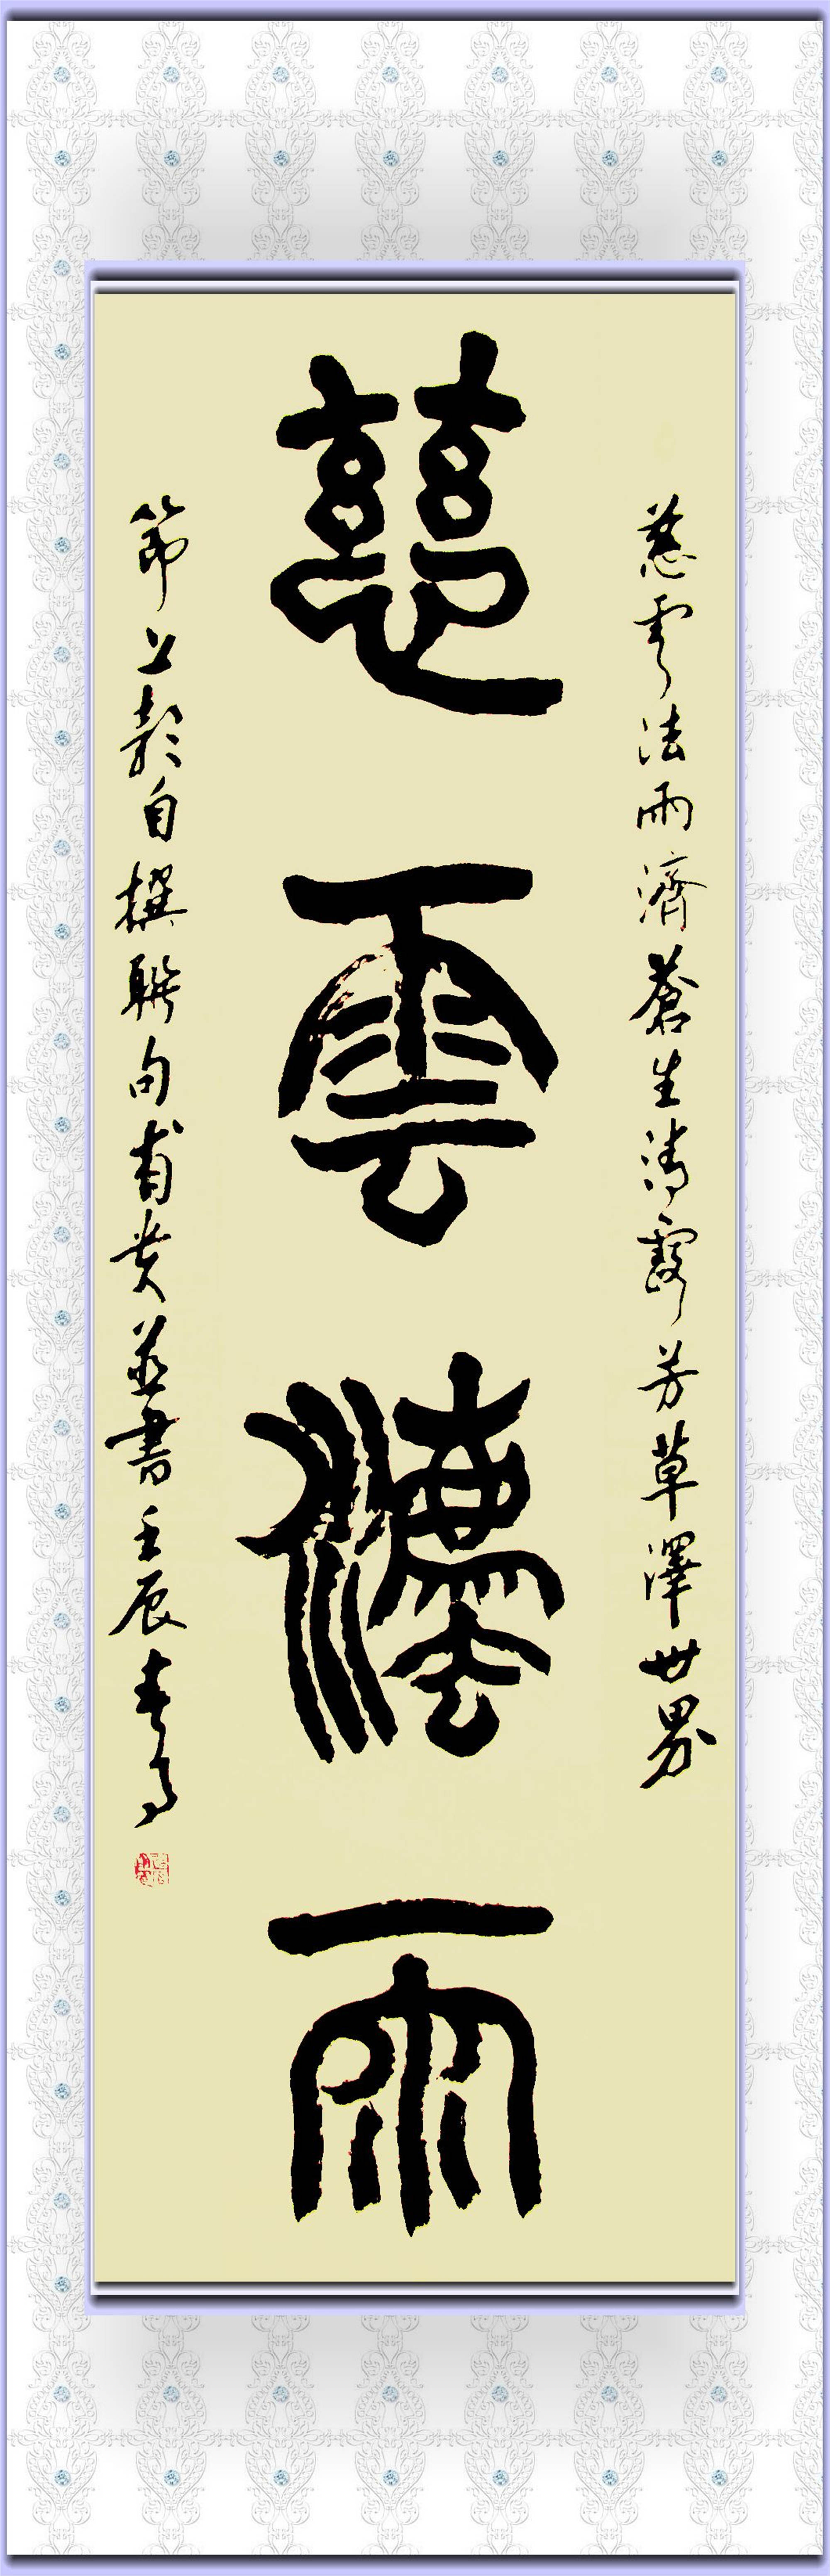 慈雲灋雨
慈雲法雨濟蒼生清露芳草澤世界
節彭自撰聯句並書壬辰春月